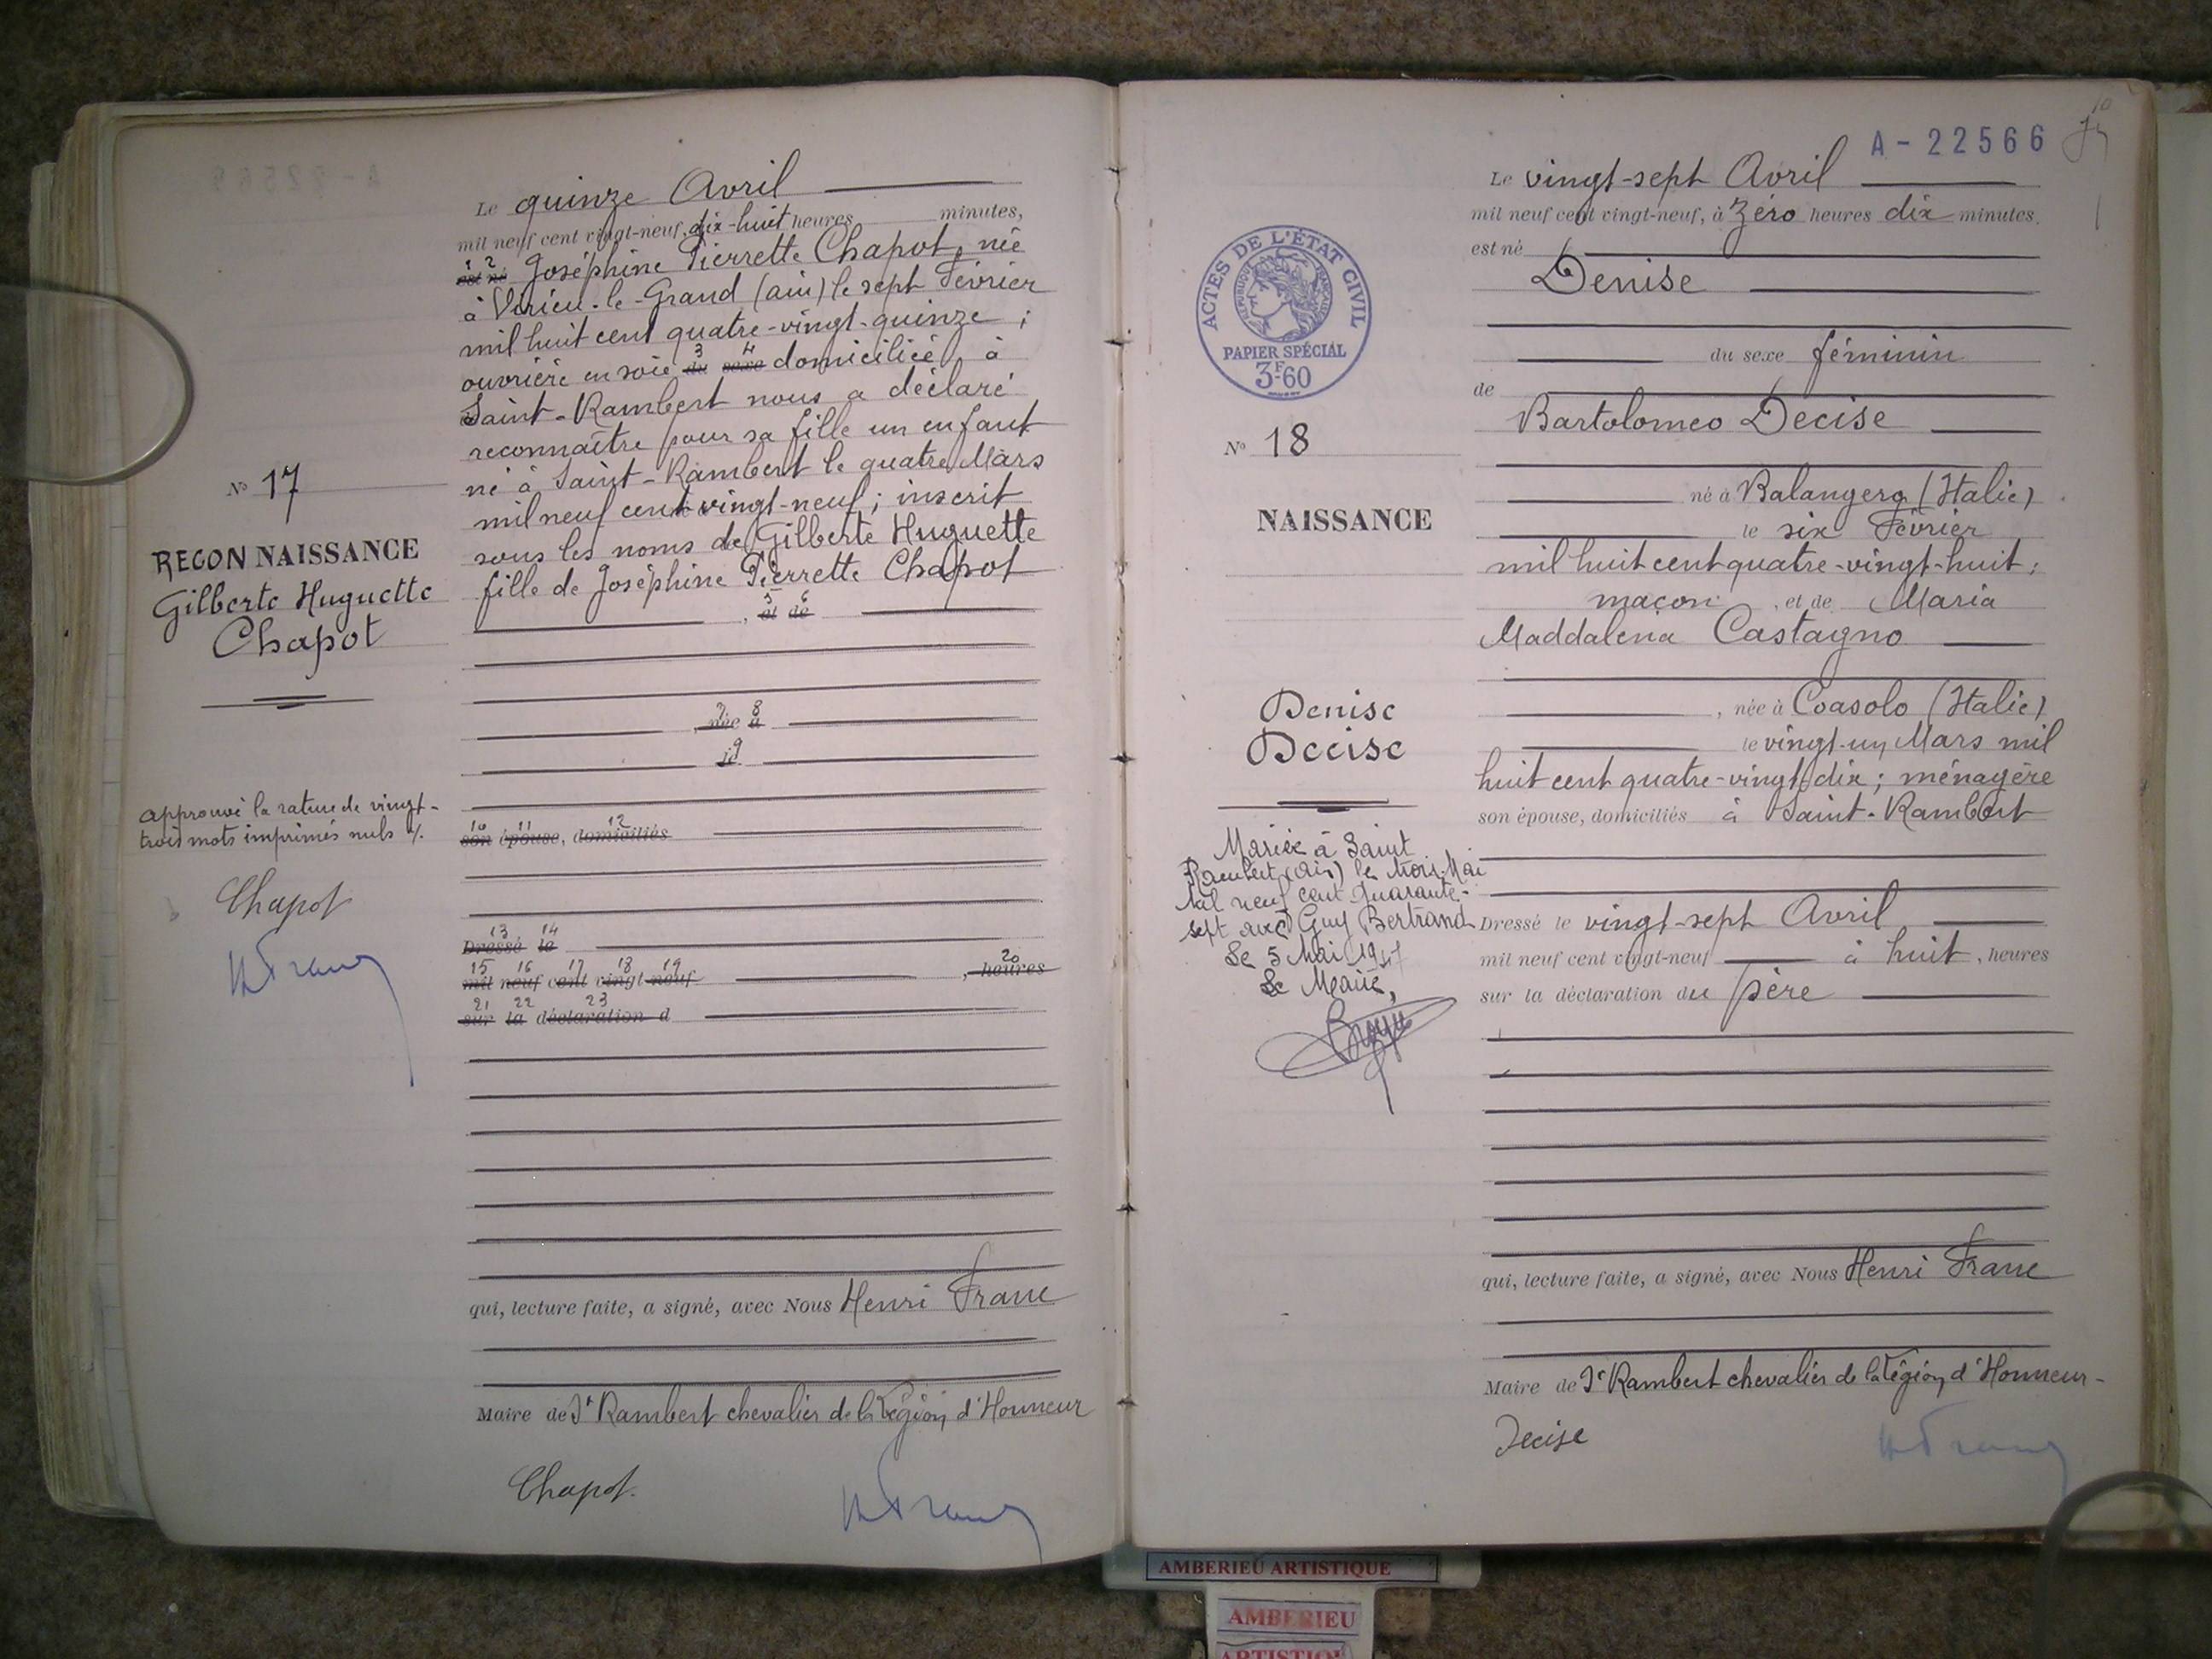 Le quinze Avril
mil neuf cent vingt-neuf, dix-huit heures minutes,
1 2
est né Joséphine Pierrette Chapot, née
à Virieu-le-Grand (ain) le sept Février
mil huit cent quatre-vingt-quinze ;
3 4
ouvrière en soie du sexe domiciliée, à
Saint-Rambert nous a déclaré
reconnaître pour sa fille un enfant
né à Saint-Rambert le quatre Mars
mil neuf cent vingt-neuf ; inscrit
sous les noms de Gilberte Huguette
fille de Joséphine Pierrette Chapot
5 6
, et de
7 8
, née à
9
le
10 11 12
son épouse, domiciliés
13 14
Dressé le
15 16 17 18 19 20
mil neuf cent vingt-neuf , heures
21 22 23
sur la déclaration d
qui, lecture faite, a signé, avec Nous Henri Franc
Maire de St Rambert chevalier de la Légion d'Honneur
Chapot.
N° 17
RECONNAISSANCE
Gilberte Huguette
Chapot
approuvé la rature de vingt-
trois mots imprimés nuls
Chapot
HFranc
HFranc
A-22566
Le vingt-sept Avril
mil neuf cent vingt-neuf, à Zéro heures dix minutes
est né
Denise
du sexe féminin
de
Bartolomeo Decise
né à Balangero (Italie)
le six Février
mil huit cent quatre-vingt-huit ;
maçon , et de Maria
Maddalena Castagno
, née à Coasolo (Italie)
le vingt-un Mars mil
huit cent quatre-vingt-dix ; ménagère
son épouse, domiciliés à Saint-Rambert
Dressé le vingt-sept Avril
mil neuf cent vingt-neuf à huit , heures
sur la déclaration du père
qui, lecture faite, a signé, avec Nous Henri Franc
Maire de St Rambert chevalier de la Légion d'Honneur-
Decise
HFranc
ACTES DE L'ÉTAT CIVIL
RÉPUBLIQUE FRANÇAISE
PAPIER SPÉCIAL
3F60
N° 18
NAISSANCE
Denise
Decise
Mariée à Saint
Rambert (ain) le trois Mai
Mil neuf cent Quarante-
sept avec Guy Bertrand
Le 5 Mai 1947
Le Maire,
AMBERIEU ARTISTIQUE
AMBERIEU
ARTISTIQUE